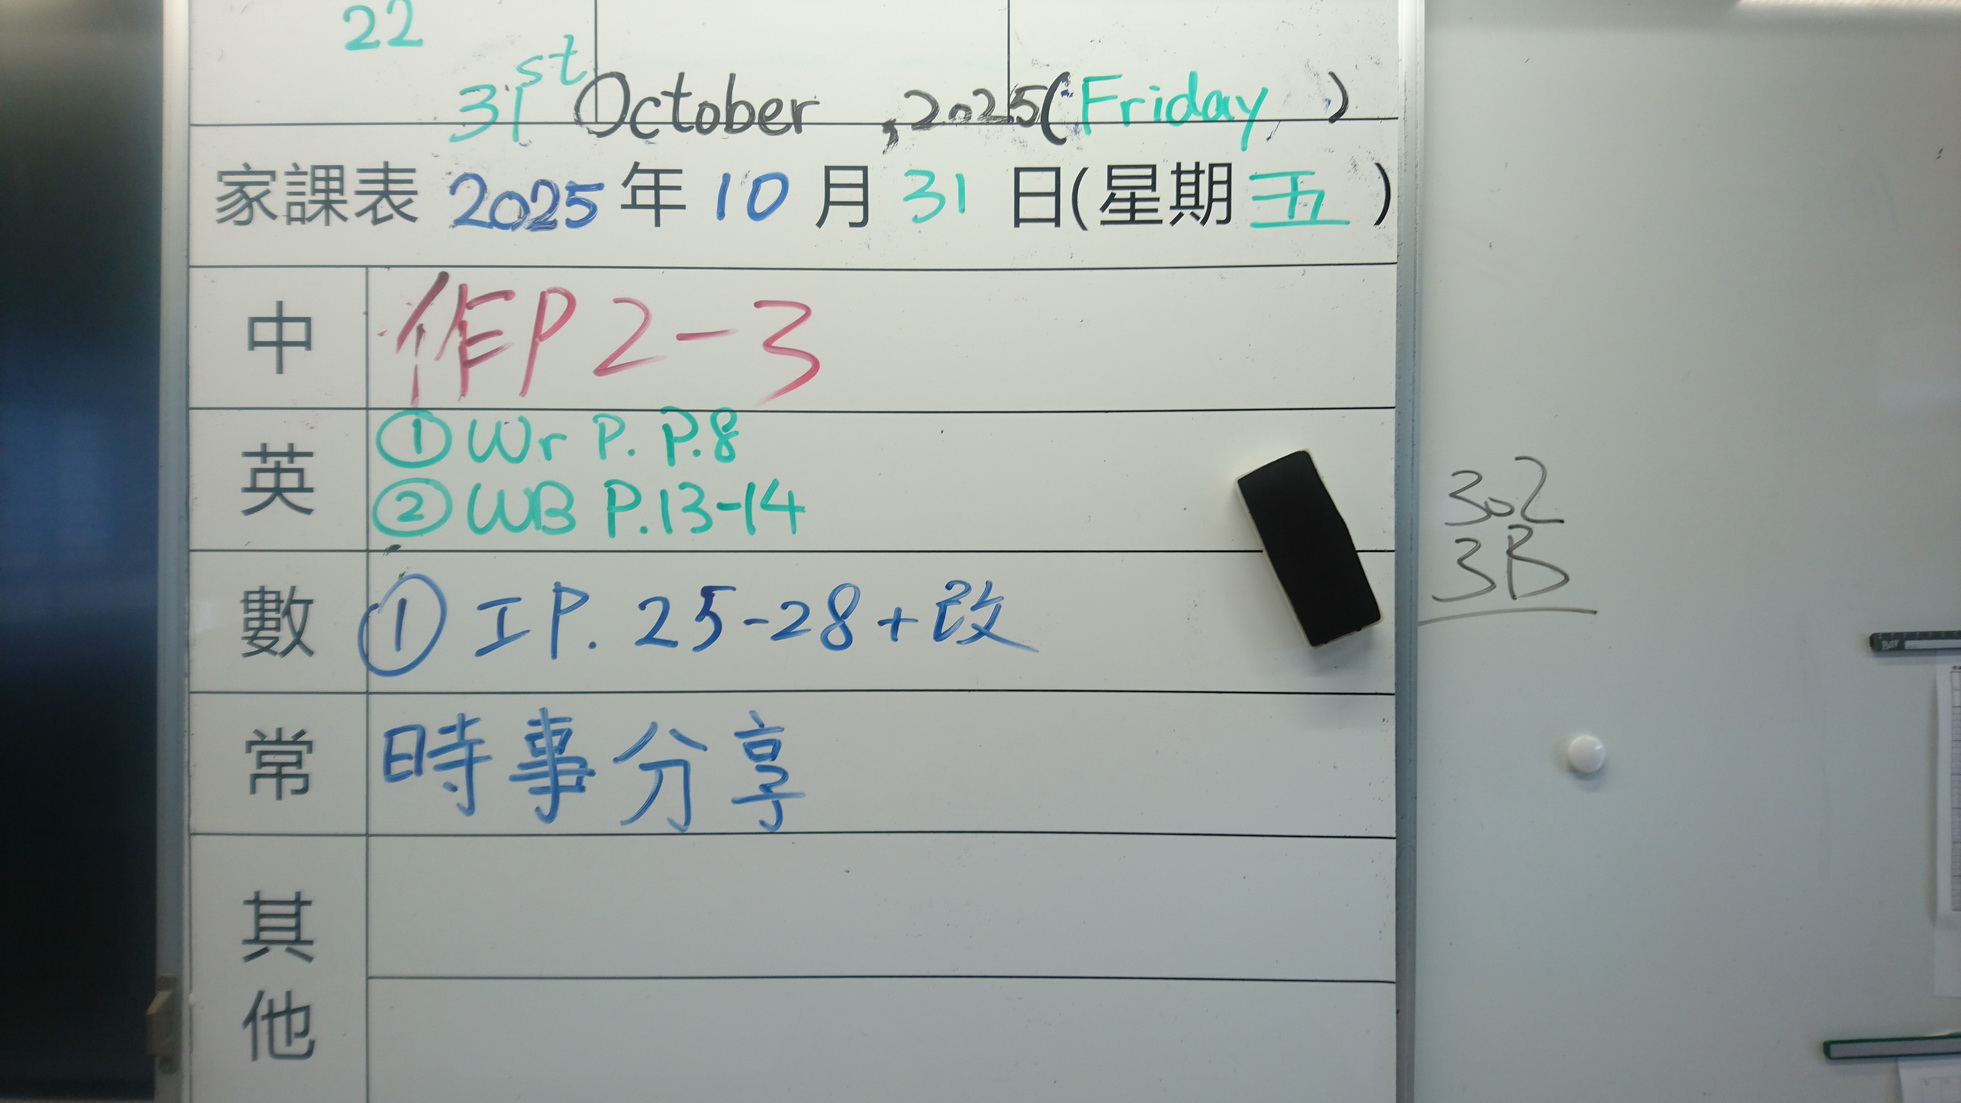 22
31st October , 2025 (Friday)
家課表 2025 年 10 月 31 日(星期五)
中 作P2-3
英 ① Wr P. P.8
② WB P.13-14
數 ① 工 P. 25-28 + 改
常 時事分享
其他
302
3B